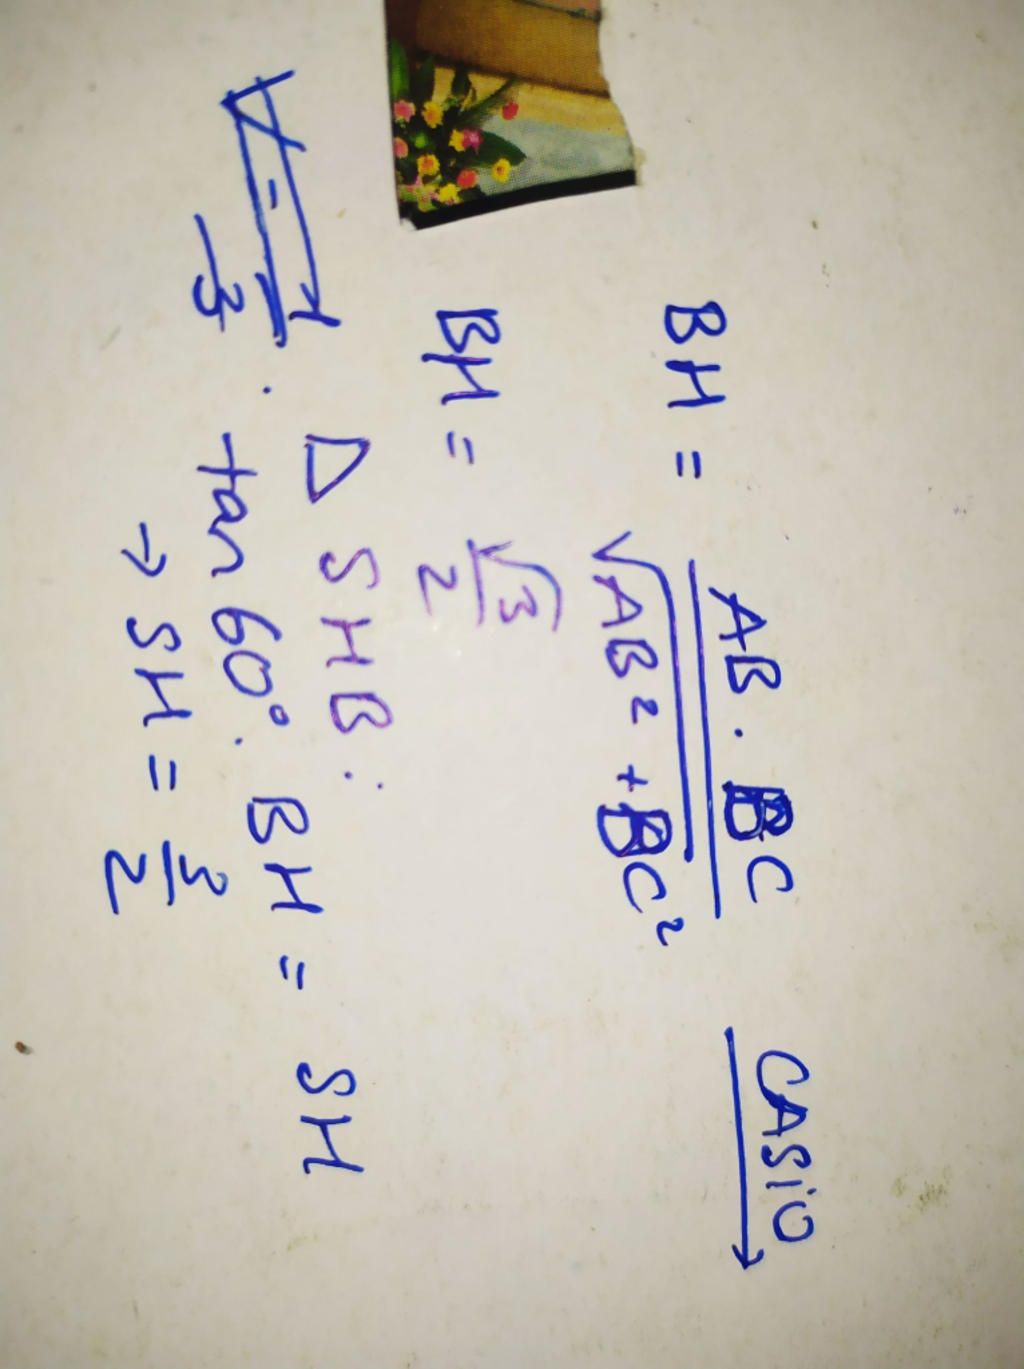 BH = AB . BC / √AB² + BC² CASIO →
BH = √3 / 2
Δ SHB :
tan 60° . BH = SH
→ SH = 3 / 2